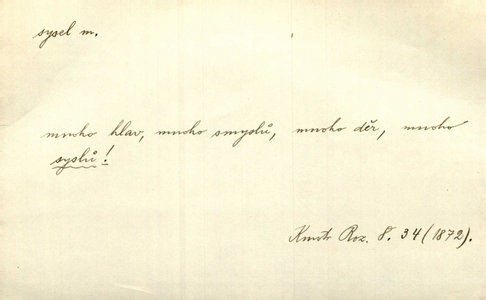 sysel m.
mnoho hlav, mnoho smyslů, mnoho děr, mnoho
syslů!
Kmotr Roz. 8. 34 (1872).